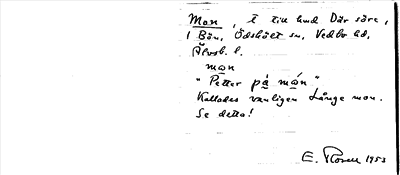 Mon, t till hmd Där söre,
i Bön, Ödsköлt sn, Vedbo hd,
Älvsb. l.
mo̲n
"Petter på mo̲n"
Kallades vanligen Långe mon.
Se detta!
E. Rosen 1953